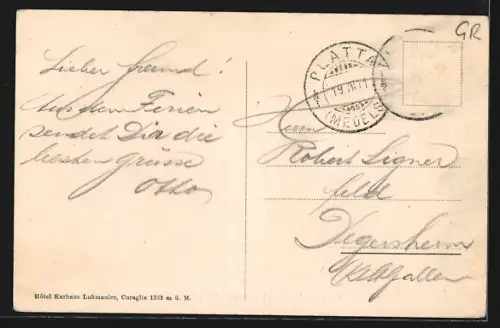 Lieber Freund!
Aus den Ferien
sendet Dir die
besten Grüsse
Otto
GR
PLATTA
19.IX.11
(MEDELS)
Herrn
Robert Signer
Degersheim
Hôtel Kurhaus Lukmanier, Curaglia 1333 m ü. M.